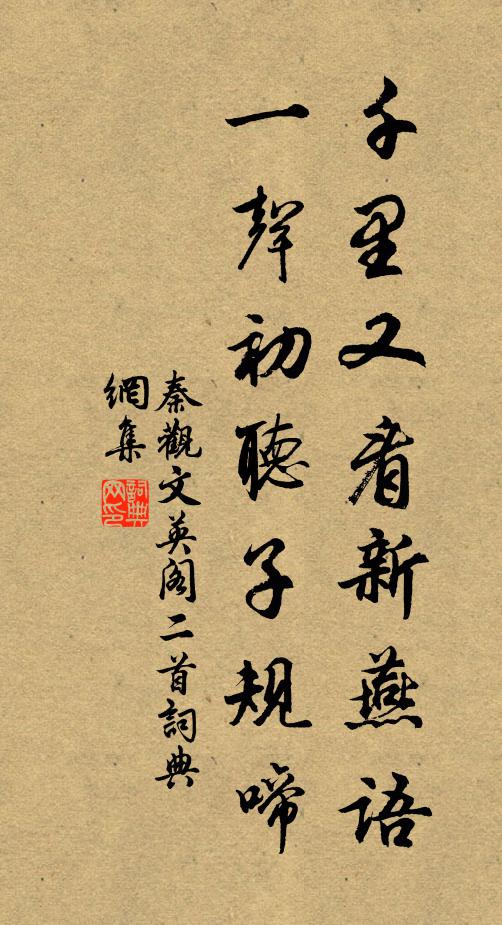 千里又看新燕語
一聲初聽子規啼
秦觀文英閣二首詞典
網集
詞典
网印